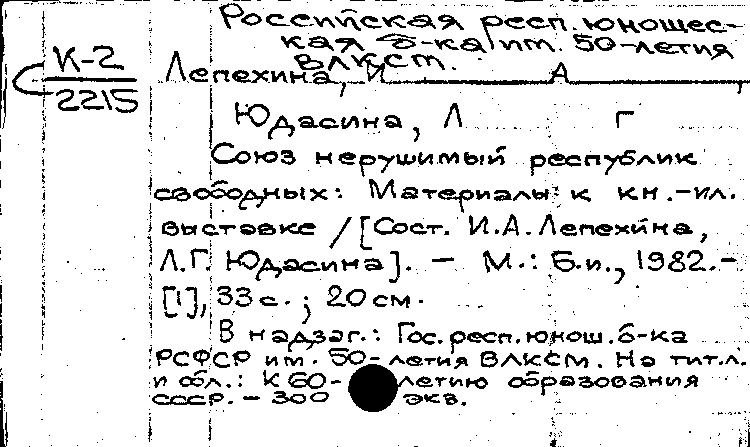 Российская респ. юношес-
кая б-ка им. 50-летия
ВЛКСМ.
К-2
2215
Лепехина, И А
Юдасина, Л Г
Союз нерушимый республик
свободных: Материалы к кн.-ил.
выставке / [Сост. И.А. Лепехина,
Л.Г. Юдасина]. - М.: Б.и., 1982.-
[1], 33 с. ; 20 см.
В надзаг.: Гос. респ. юнош. б-ка
РСФСР им. 50-летия ВЛКСМ. На тит. л.
и обл.: К 60-летию образования
СССР. - 300 экз.